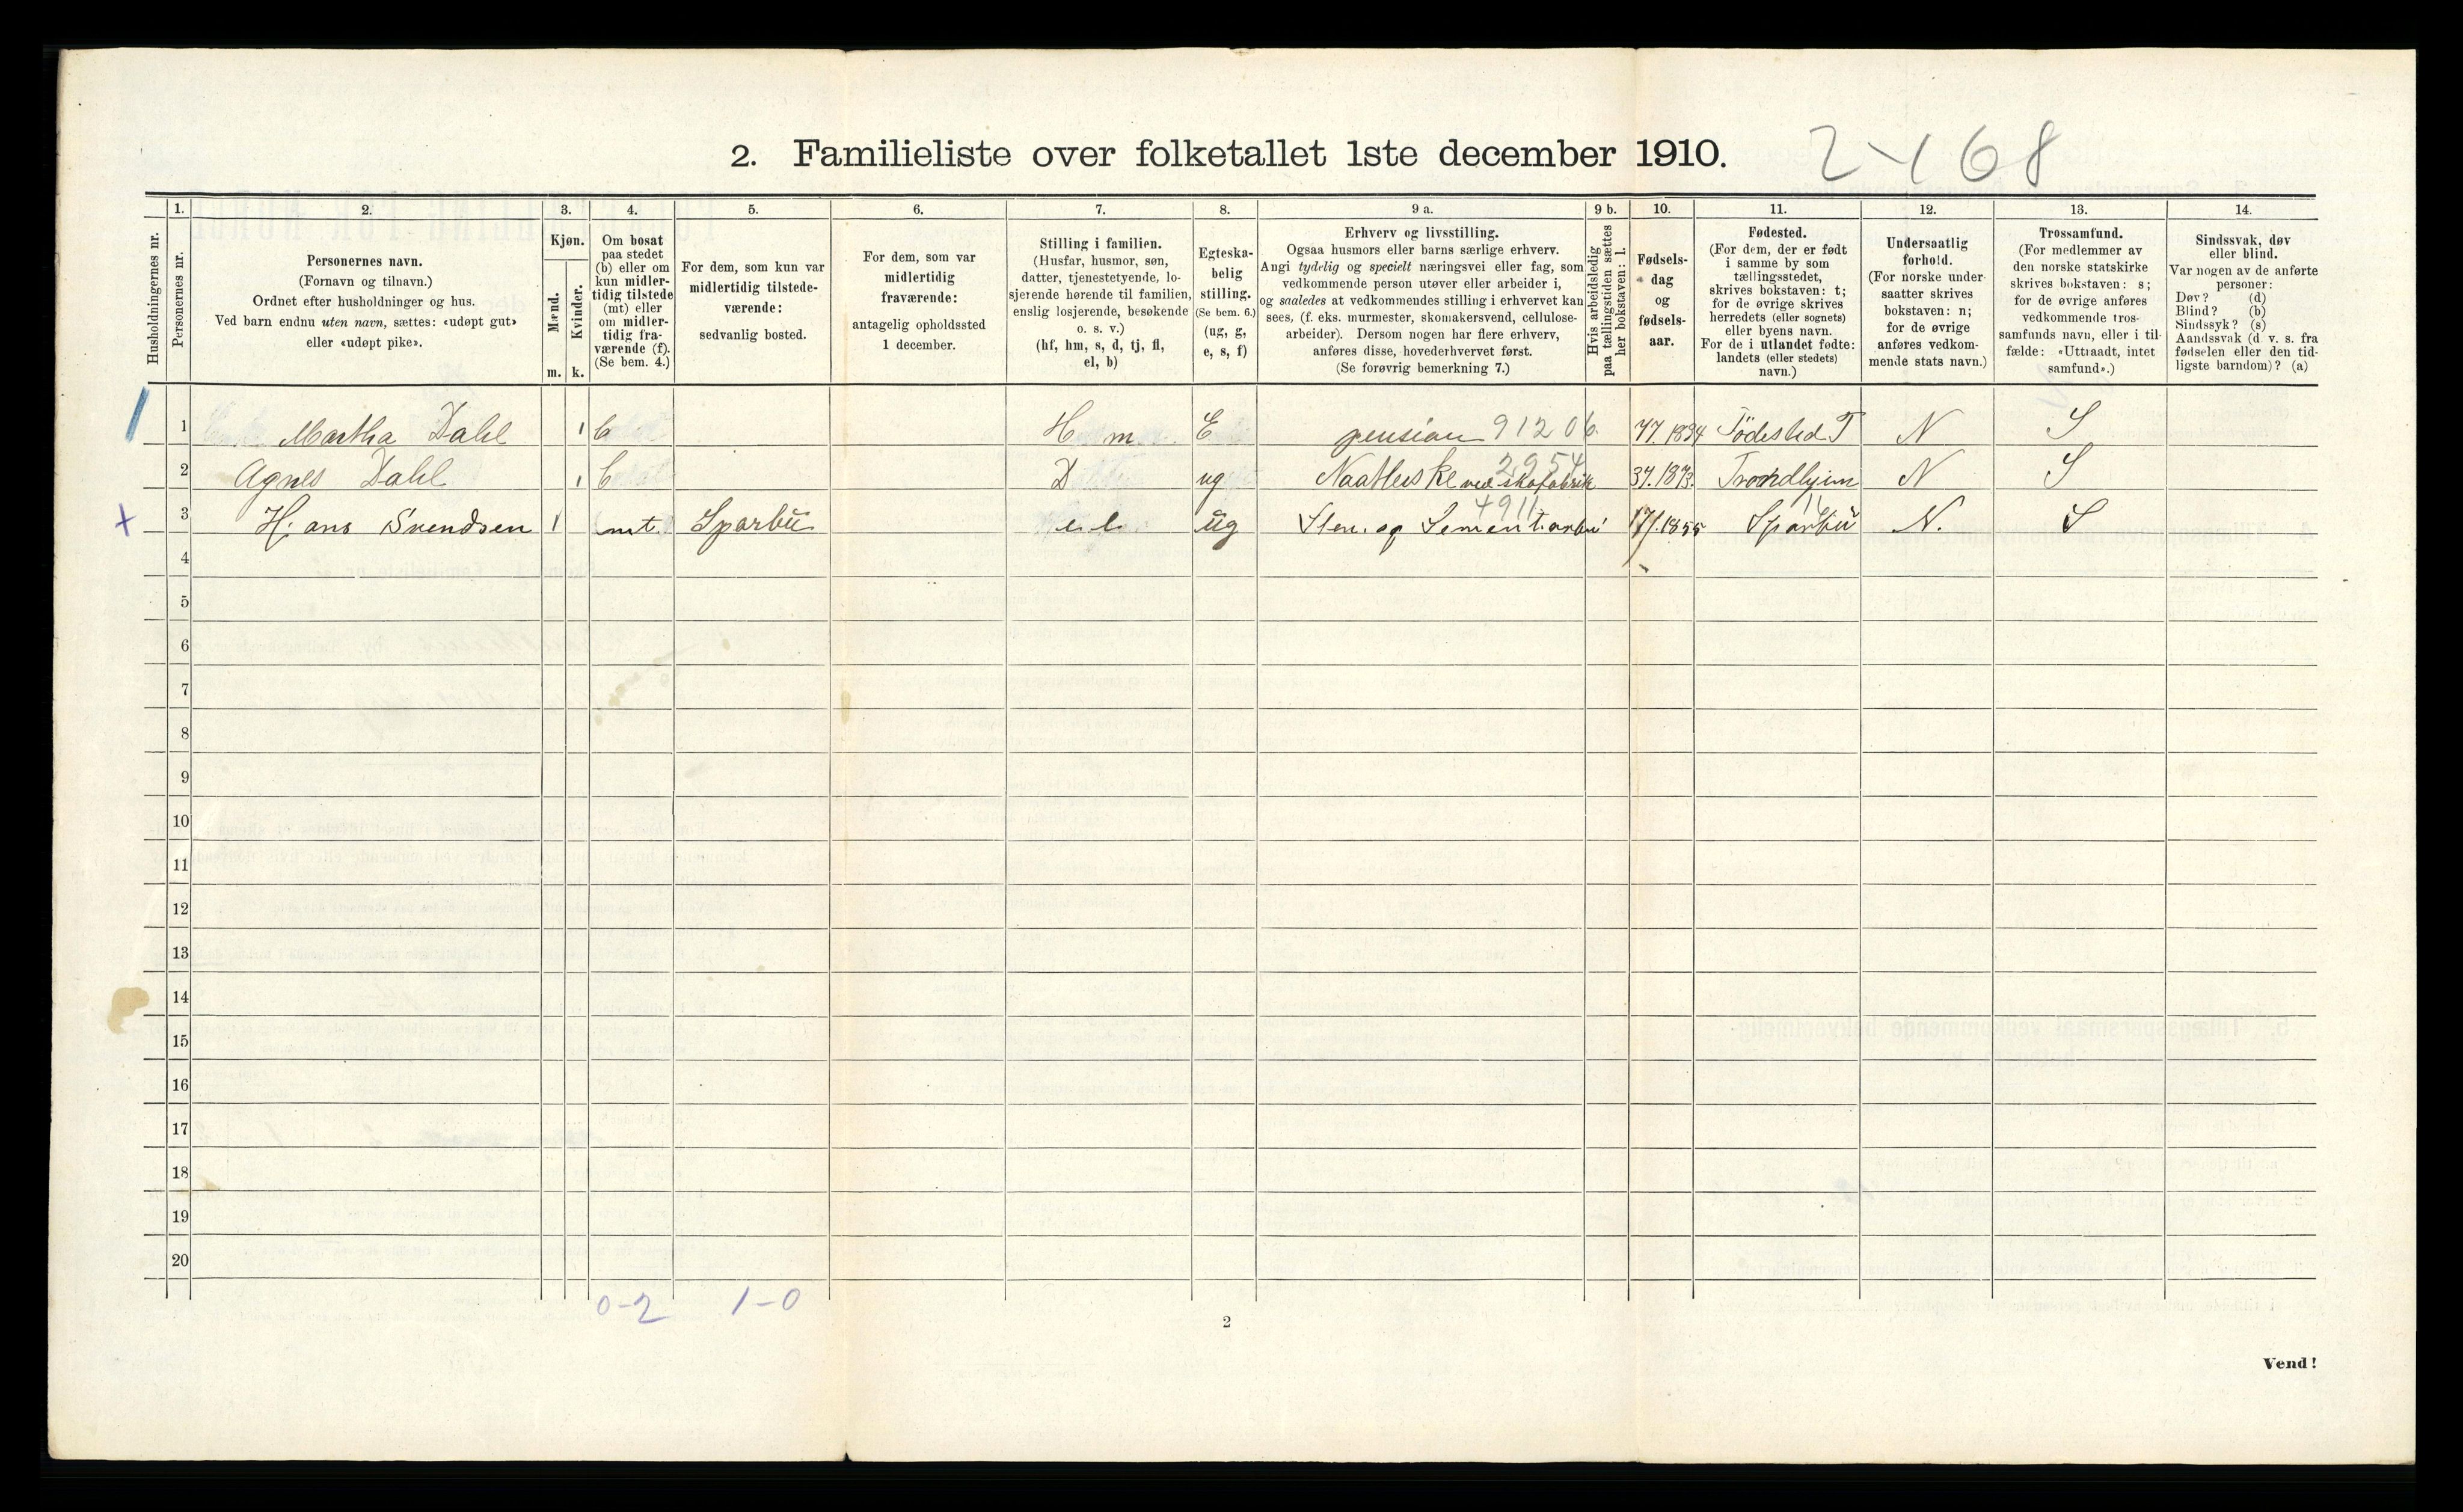 2. Familieliste over folketallet 1ste december 1910. 2468
1. 2. 3. 4. 5. 6. 7. 8. 9 a. 9 b. 10. 11. 12. 13. 14.
Husholdningernes nr.
Personernes nr.
Personernes navn.
(Fornavn og tilnavn.)
Ordnet efter husholdninger og hus.
Ved barn endnu uten navn, sættes: «udøpt gut»
eller «udøpt pike».
Kjøn.
Mænd.
Kvinder.
m. k.
Om bosat
paa stedet
(b) eller om
kun midler-
tidig tilstede
(mt) eller
om midler-
tidig fra-
værende (f).
(Se bem. 4.)
For dem, som kun var
midlertidig tilstede-
værende:
sedvanlig bosted.
For dem, som var
midlertidig
fraværende:
antagelig opholdssted
1 december.
Stilling i familien.
(Husfar, husmor, søn,
datter, tjenestetyende, lo-
sjerende hørende til familien,
enslig losjerende, besøkende
o. s. v.)
(hf, hm, s, d, tj, fl,
el, b)
Egteska-
belig
stilling.
(Se bem. 6.)
(ug, g,
e, s, f)
Erhverv og livsstilling.
Ogsaa husmors eller barns særlige erhverv.
Angi tydelig og specielt næringsvei eller fag, som
vedkommende person utøver eller arbeider i,
og saaledes at vedkommendes stilling i erhvervet kan
sees, (f. eks. murmester, skomakersvend, cellulose-
arbeider). Dersom nogen har flere erhverv,
anføres disse, hovederhvervet først.
(Se forøvrig bemerkning 7.)
Hvis arbeidsledig
paa tællingstiden sættes
her bokstaven: l.
Fødsels-
dag
og
fødsels-
aar.
Fødested.
(For dem, der er født
i samme by som
tællingsstedet,
skrives bokstaven: t;
for de øvrige skrives
herredets (eller sognets)
eller byens navn.
For de i utlandet fødte:
landets (eller stedets)
navn.)
Undersaatlig
forhold.
(For norske under-
saatter skrives
bokstaven: n;
for de øvrige
anføres vedkom-
mende stats navn.)
Trossamfund.
(For medlemmer av
den norske statskirke
skrives bokstaven: s;
for de øvrige anføres
vedkommende tros-
samfunds navn, eller i til-
fælde: «Uttraadt, intet
samfund».)
Sindssvak, døv
eller blind.
Var nogen av de anførte
personer:
Døv? (d)
Blind? (b)
Sindssyk? (s)
Aandssvak (d. v. s. fra
fødselen eller den tid-
ligste barndom)? (a)
1 Martha Dahl 1 b H m. E pension 91206 Födested T N S
2 Agnes Dahl 1 b D ug 2954 Trondhjem N S
x 3 Hans Svendsen 1 mt. Sparbu el ug Sten. og Sementarbei 4911 17/1.1855 Sparbu 11 N. S
4
5
6
7
8
9
10
11
12
13
14
15
16
17
18
19
20
0-2 1-0
2
Vend!